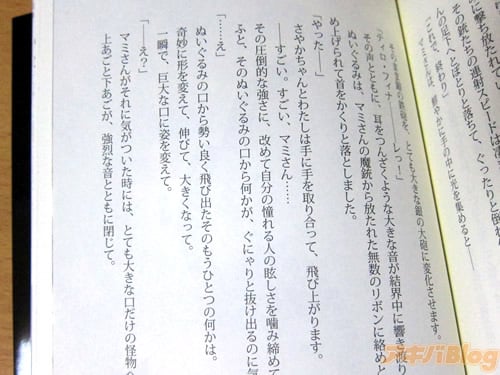 に撃ち放たれ
その銃たちの連射スピードは
んの足下へとぽとりと落ちて、ぐったりと倒れ
「これで、終わり」
マミさんは、軽やかに手の中に光を集めると――
その銀の銃砲を、とても大きな銀の大砲に変化させます。
「ティロ・フィナーレっ！」
その声とともに、耳をつんざくような大きな音が結界中に響き渡り
ぬいぐるみは、マミさんの魔銃から放たれた無数のリボンに絡めと
め上げられて首をかくりと落としました。
「やった――」
さやかちゃんとわたしは手に手を取り合って、飛び上がります。
――すごい。すごい、マミさん……
その圧倒的な強さに、改めて自分の憧れる人の眩しさを噛み締めて
ふと、そのぬいぐるみの口から何かが、ぐにゃりと抜け出るのに気
「……え」
ぬいぐるみの口から勢い良く飛び出たそのもうひとつの何かは。
奇妙に形を変えて、伸びて、大きくなって。
一瞬で、巨大な口に姿を変えて。
「――え？」
マミさんがそれに気がついた時には、とても大きな口だけの怪物の
上あごと下あごが、強烈な音とともに閉じて。
アキバBlog